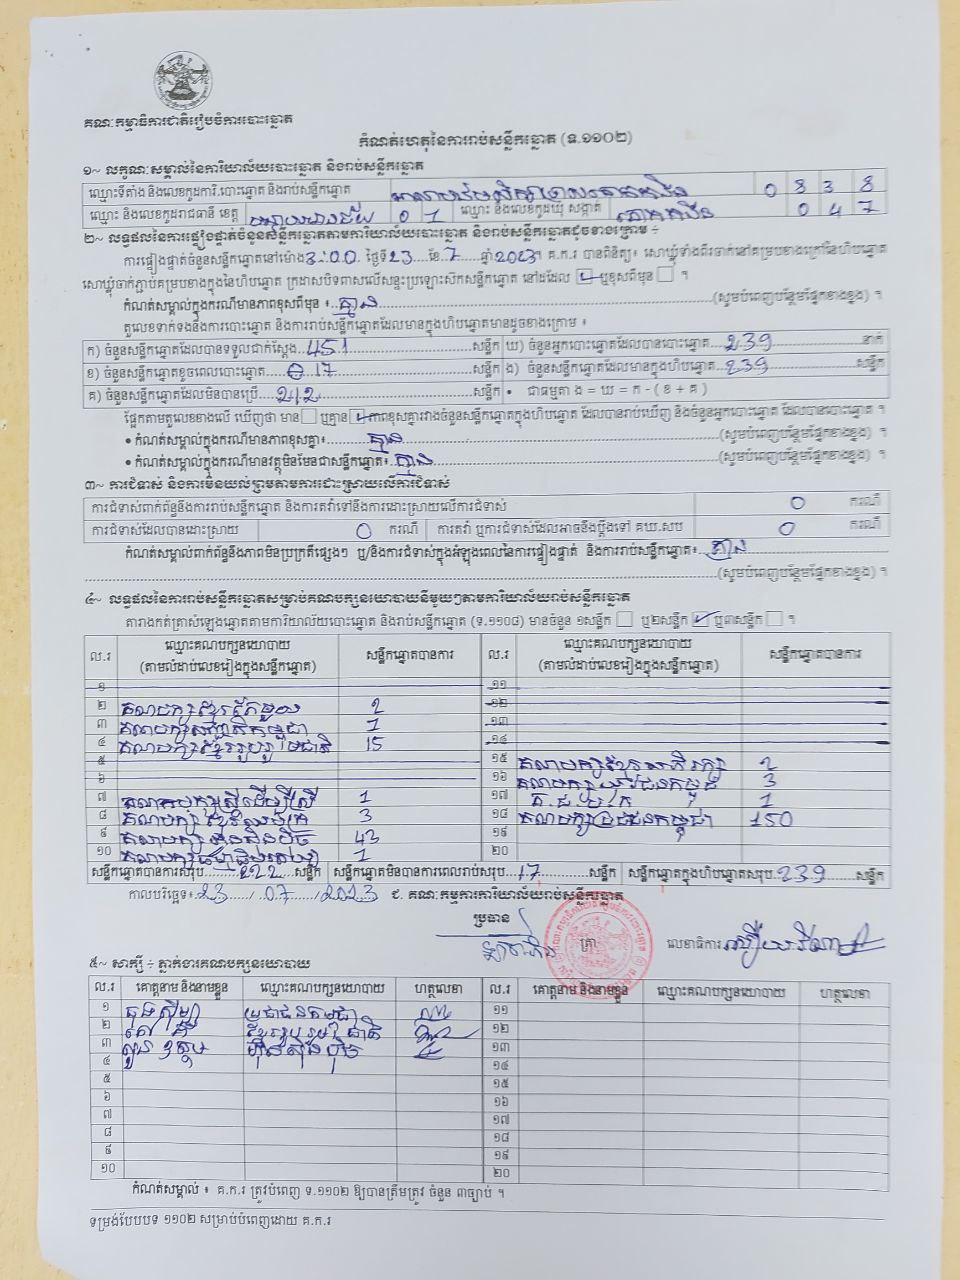 គណៈកម្មាធិការជាតិរៀបចំការបោះឆ្នោត
កំណត់ហេតុនៃការរាប់សន្លឹកឆ្នោត (ទ.១១០២)
១~ លក្ខណៈសម្គាល់នៃការិយាល័យបោះឆ្នោត និងរាប់សន្លឹកឆ្នោត
ឈ្មោះទីតាំង និងលេខកូដការិ.បោះឆ្នោត និងរាប់សន្លឹកឆ្នោត 0 8 3 8
ឈ្មោះ និងលេខកូដរាជធានី ខេត្ត បន្ទាយមានជ័យ 0 1 ឈ្មោះ និងលេខកូដឃុំ សង្កាត់ 0 4 7
២~ លទ្ធផលនៃការផ្ទៀងផ្ទាត់ចំនួនសន្លឹកឆ្នោតតាមការិយាល័យបោះឆ្នោត និងរាប់សន្លឹកឆ្នោតដូចខាងក្រោម ÷
ការផ្ទៀងផ្ទាត់ចំនួនសន្លឹកឆ្នោតនៅម៉ោង 3:00 ថ្ងៃទី 23 ខែ 7 ឆ្នាំ 2023។ គ.ក.រ បានពិនិត្យ៖ សោឃ្លុំទាំងពីរចាក់នៅគម្របខាងក្រៅនៃហិបឆ្នោត
សោឃ្លុំចាក់ភ្ជាប់គម្របខាងក្នុងនៃហិបឆ្នោត ក្រដាសបិទពាសលើសន្ទះប្រឡោះស៊កសន្លឹកឆ្នោត នៅដដែល ឬខុសពីមុន ។
កំណត់សម្គាល់ក្នុងករណីមានភាពខុសពីមុន ៖ គ្មាន (សូមបំពេញបន្ថែមផ្នែកខាងខ្នង) ។
តួលេខទាក់ទងនឹងការបោះឆ្នោត និងការរាប់សន្លឹកឆ្នោតដែលមានក្នុងហិបឆ្នោតមានដូចខាងក្រោម ៖
ក) ចំនួនសន្លឹកឆ្នោតដែលបានទទួលជាក់ស្តែង 451 សន្លឹក ឃ) ចំនួនអ្នកបោះឆ្នោតដែលបានបោះឆ្នោត 239 នាក់
ខ) ចំនួនសន្លឹកឆ្នោតខូចពេលបោះឆ្នោត សន្លឹក ង) ចំនួនសន្លឹកឆ្នោតដែលមានក្នុងហិបឆ្នោត 239 សន្លឹក
គ) ចំនួនសន្លឹកឆ្នោតដែលមិនបានប្រើ 212 សន្លឹក • ជាធម្មតា ង = ឃ = ក - ( ខ + គ )
ផ្អែកតាមតួលេខខាងលើ ឃើញថា មាន ឬគ្មាន ភាពខុសគ្នារវាងចំនួនសន្លឹកឆ្នោតក្នុងហិបឆ្នោត ដែលបានរាប់ឃើញ និងចំនួនអ្នកបោះឆ្នោត ដែលបានបោះឆ្នោត ។
• កំណត់សម្គាល់ក្នុងករណីមានភាពខុសគ្នា៖ គ្មាន (សូមបំពេញបន្ថែមផ្នែកខាងខ្នង) ។
• កំណត់សម្គាល់ក្នុងករណីមានវត្ថុមិនមែនជាសន្លឹកឆ្នោត៖ គ្មាន (សូមបំពេញបន្ថែមផ្នែកខាងខ្នង) ។
៣~ ការជំទាស់ និងការមិនយល់ព្រមតាមការដោះស្រាយលើការជំទាស់
ការជំទាស់ពាក់ព័ន្ធនឹងការរាប់សន្លឹកឆ្នោត និងការតវ៉ាទៅនឹងការដោះស្រាយលើការជំទាស់ 0 ករណី
ការជំទាស់ដែលបានដោះស្រាយ 0 ករណី ការតវ៉ា ឬការជំទាស់ដែលអាចនឹងប្តឹងទៅ គឃ.សប 0 ករណី
កំណត់សម្គាល់ពាក់ព័ន្ធនឹងភាពមិនប្រក្រតីផ្សេងៗ ឬ/និងការជំទាស់ក្នុងអំឡុងពេលនៃការផ្ទៀងផ្ទាត់ និងការរាប់សន្លឹកឆ្នោត៖ គ្មាន
(សូមបំពេញបន្ថែមផ្នែកខាងខ្នង) ។
៤~ លទ្ធផលនៃការរាប់សន្លឹកឆ្នោតសម្រាប់គណបក្សនយោបាយនីមួយៗតាមការិយាល័យរាប់សន្លឹកឆ្នោត
តារាងកត់ត្រាសំឡេងឆ្នោតតាមការិយាល័យបោះឆ្នោត និងរាប់សន្លឹកឆ្នោត (ទ.១១០៨) មានចំនួន ១សន្លឹក ឬ២សន្លឹក ឬ៣សន្លឹក ។
ល.រ ឈ្មោះគណបក្សនយោបាយ សន្លឹកឆ្នោតបានការ ល.រ ឈ្មោះគណបក្សនយោបាយ សន្លឹកឆ្នោតបានការ
(តាមលំដាប់លេខរៀងក្នុងសន្លឹកឆ្នោត) (តាមលំដាប់លេខរៀងក្នុងសន្លឹកឆ្នោត)
១ ១១
២ 2 ១២
៣ 1 ១៣
៤ គណបក្សខ្មែររួបរួមជាតិ 15 ១៤
៥ ១៥ 2
៦ ១៦ 3
៧ 1 ១៧ 1
៨ 3 ១៨ គណបក្សប្រជាជនកម្ពុជា 150
៩ គណបក្ស ហ៊្វុនស៊ិនប៉ិច 43 ១៩
១០ 1 ២០
សន្លឹកឆ្នោតបានការសរុប 222 សន្លឹក សន្លឹកឆ្នោតមិនបានការពេលរាប់សរុប 17 សន្លឹក សន្លឹកឆ្នោតក្នុងហិបឆ្នោតសរុប 239 សន្លឹក
កាលបរិច្ឆេទ៖ 23 / 07 / 2023 ជ. គណៈកម្មការការិយាល័យរាប់សន្លឹកឆ្នោត
ប្រធាន
ត្រា លេខាធិការ
៥~ សាក្សី ÷ ភ្នាក់ងារគណបក្សនយោបាយ
ល.រ គោត្តនាម និងនាមខ្លួន ឈ្មោះគណបក្សនយោបាយ ហត្ថលេខា ល.រ គោត្តនាម និងនាមខ្លួន ឈ្មោះគណបក្សនយោបាយ ហត្ថលេខា
១ ប្រជាជនកម្ពុជា ១១
២ ខ្មែររួបរួមជាតិ ១២
៣ ហ៊្វុនស៊ិនប៉ិច ១៣
៤ ១៤
៥ ១៥
៦ ១៦
៧ ១៧
៨ ១៨
៩ ១៩
១០ ២០
កំណត់សម្គាល់ ៖ គ.ក.រ ត្រូវបំពេញ ទ.១១០២ ឱ្យបានត្រឹមត្រូវ ចំនួន ៣ច្បាប់ ។
ទម្រង់បែបបទ ១១០២ សម្រាប់បំពេញដោយ គ.ក.រ